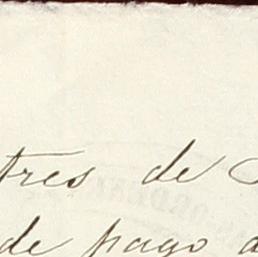 tres de
de pago a